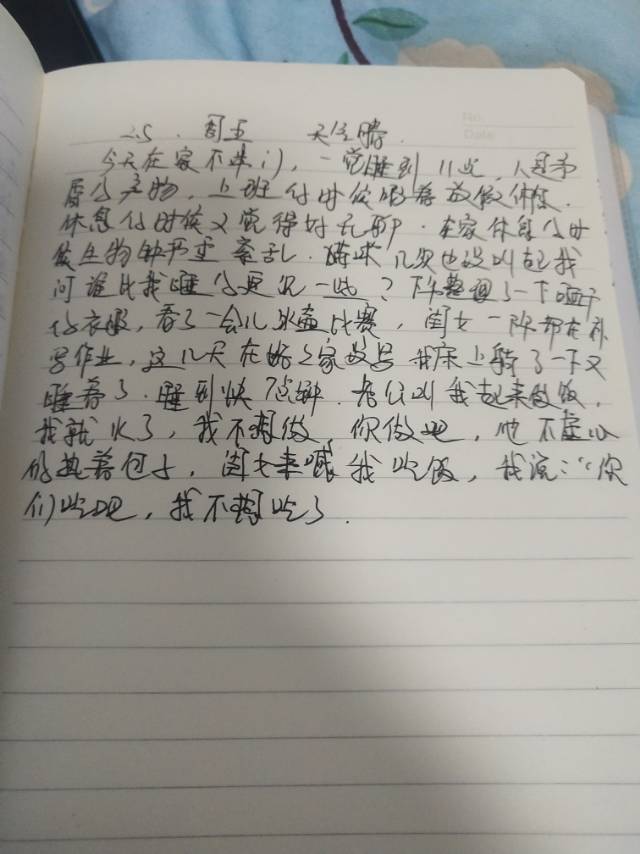 No.
Date
25. 周五 天气晴.
今天在家不准,一觉睡到11点,人是矛
盾的产物,上班的时候盼着放假休息.
休息的时候又觉得好无聊.在家休息的时
候生物钟严重紊乱. 几次也没叫起我
问谁比我睡的更沉一些?下午整理了一下晒干
的衣服,看了一会儿 比赛,闺女一阵都在补
写作业,这几天在 床上躺了一下又
睡着了.睡到快7点钟.老公叫我起来做饭,
我就火了,我不想做,你做吧,他不 心
的热着包子,闺女来喊我吃饭,我说:“你
们吃吧,我不想吃了.